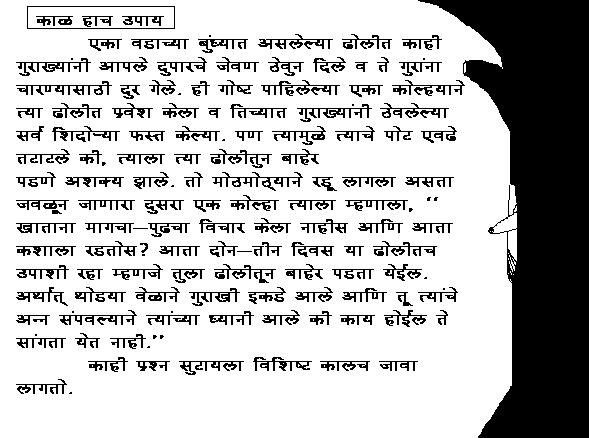 काळ हाच उपाय
एका वडाच्या बुंध्यात असलेल्या ढोलीत काही
गुराख्यांनी आपले दुपारचे जेवण ठेवुन दिले व ते गुरांना
चारण्यासाठी दुर गेले. ही गोष्ट पाहिलेल्या एका कोल्हयाने
त्या ढोलीत प्रवेश केला व तिच्यात गुराख्यांनी ठेवलेल्या
सर्व शिदोऱ्या फस्त केल्या. पण त्यामुळे त्याचे पोट एवढे
तटाटले की, त्याला त्या ढोलीतुन बाहेर
पडणे अशक्य झाले. तो मोठमोठ्याने रडू लागला असता
जवळून जाणारा दुसरा एक कोल्हा त्याला म्हणाला, ‘‘
खाताना मागचा–पुढचा विचार केला नाहीस आणि आता
कशाला रडतोस? आता दोन–तीन दिवस या ढोलीतच
उपाशी रहा म्हणजे तुला ढोलीतून बाहेर पडता येईल.
अर्थात् थोडया वेळाने गुराखी इकडे आले आणि तू त्यांचे
अन्न संपवल्याने त्यांच्या ध्यानी आले की काय होईल ते
सांगता येत नाही.’’
काही प्रश्न सुटायला विशिष्ट कालच जावा
लागतो.